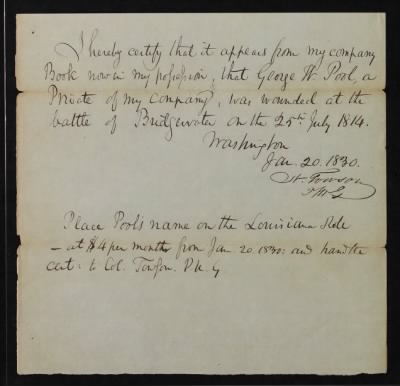 I hereby certify that it appears from my company
Book now in my possession, that George W. Pool, a
Private of my company, was wounded at the
battle of Bridgewater on the 25th July 1814.
Washington
Jan. 20. 1830.
N. Towson
P M G
Place Pool's name on the Louisiana Role
- at $4 per month from Jan. 20. 1830: and hand the
cert: to Col. Towson. P M G.